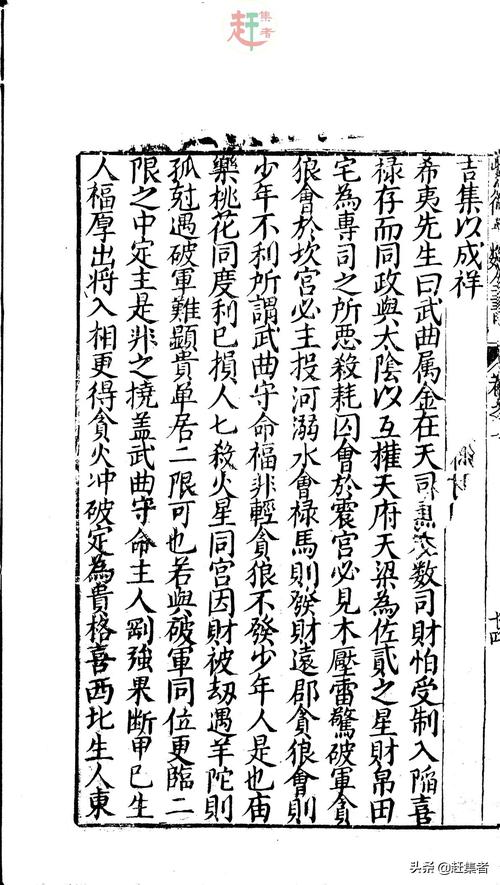 赶集者
吉集以成祥
希夷先生曰武曲属金在天司数司財怕受制入陷喜
禄存而同政與太陰以互權天府天梁為佐貳之星財帛田
宅為專司之所惡殺耗囚會於震宮必見木壓雷驚破軍貪
狼會於坎宮必主投河溺水會禄馬則發財遠郡貪狼會則
少年不利所謂武曲守命福非輕貪狼不發少年人是也庙
樂桃花同度利已損人七殺火星同宮因財被劫遇羊陀則
孤尅遇破軍難顯貴单居二限可也若與破軍同位更臨二
限之中定主是非之撓盖武曲守命主人剛強果断甲巳生
人福厚出将入相更得貪火冲破定為貴格喜西北生人東
廿四
头条 @赶集者